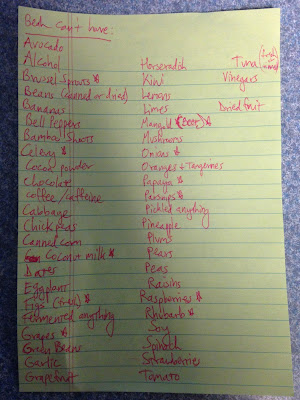 Beth can't have:
Avocado
Alcohol
Brussel Sprouts *
Beans (canned or dried)
Bananas
Bell Peppers
Bamboo Shoots
Celery *
Cocoa powder
Chocolate
Coffee/caffeine
Cabbage
Chick peas
Canned corn
Coconut milk *
Dates
Eggplant
Eggs (fresh) *
Fermented anything
Grapes *
Green Beans
Garlic
Grapefruit
Horseradish
Kiwi
Lemons
Limes
Mangold (Beet) *
Mushrooms
Onions *
Oranges + Tangerines
Papaya *
Parsnips *
Pickled anything
Pineapple
Plums
Pears
Peas
Raisins
Raspberries *
Rhubarb *
Soy
Spinach
Strawberries
Tomato
Tuna (fresh or canned)
Vinegars
Dried fruit